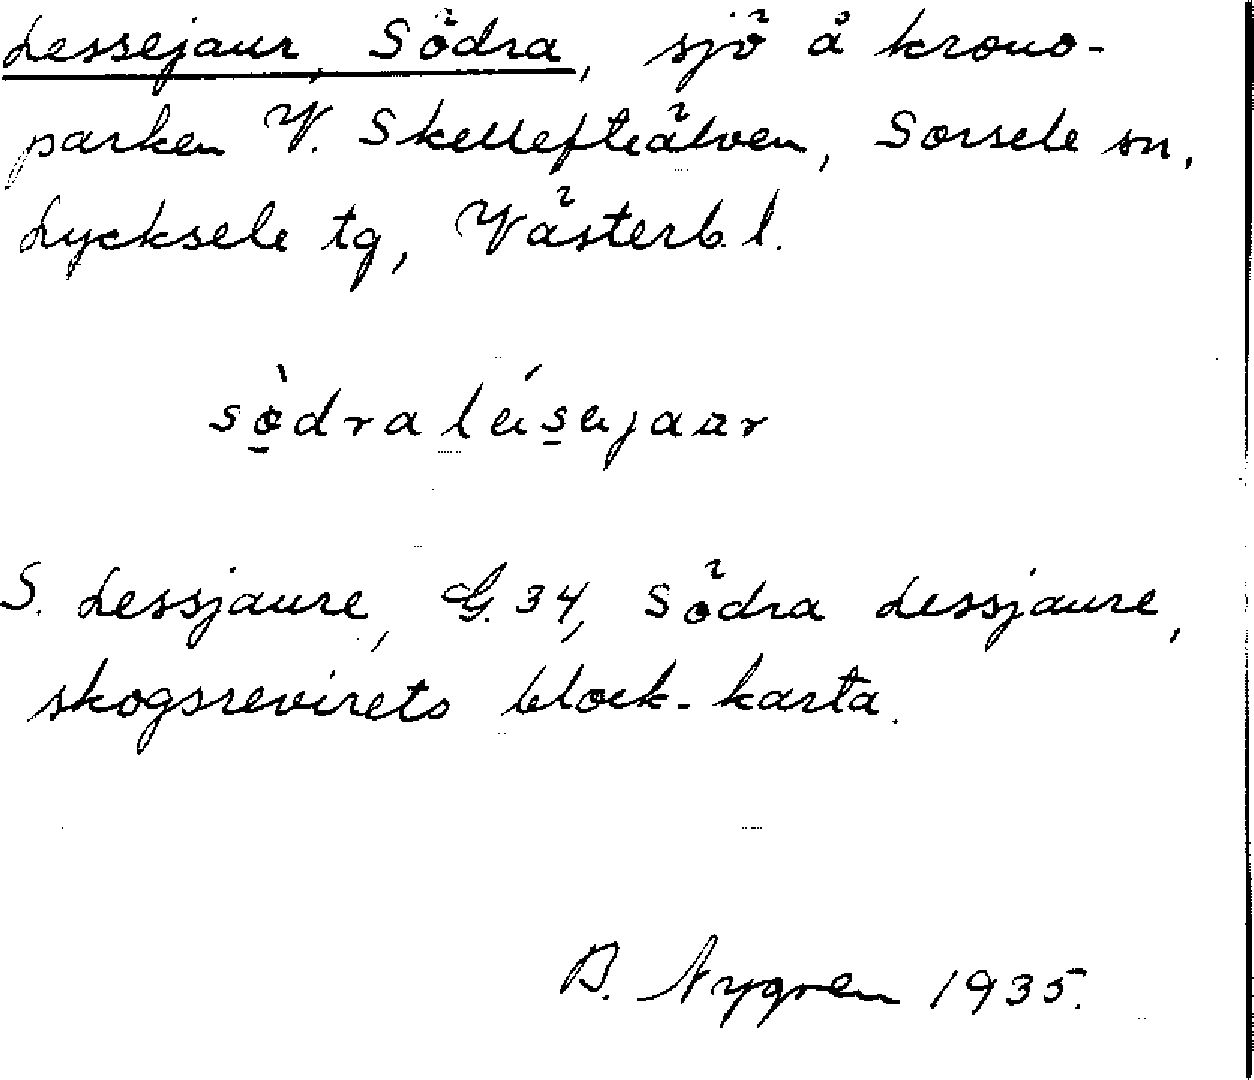 Lessejaur, Södra, sjö å krono-
parken V. Skellefteälven, Sorsele sn,
Lycksele tg, Västerb. l.
sø̀dra lésejaar
S. Lessjaure, G. 34, Södra Lessjaure,
skogsrevirets block-karta.
B. Nygren 1935.